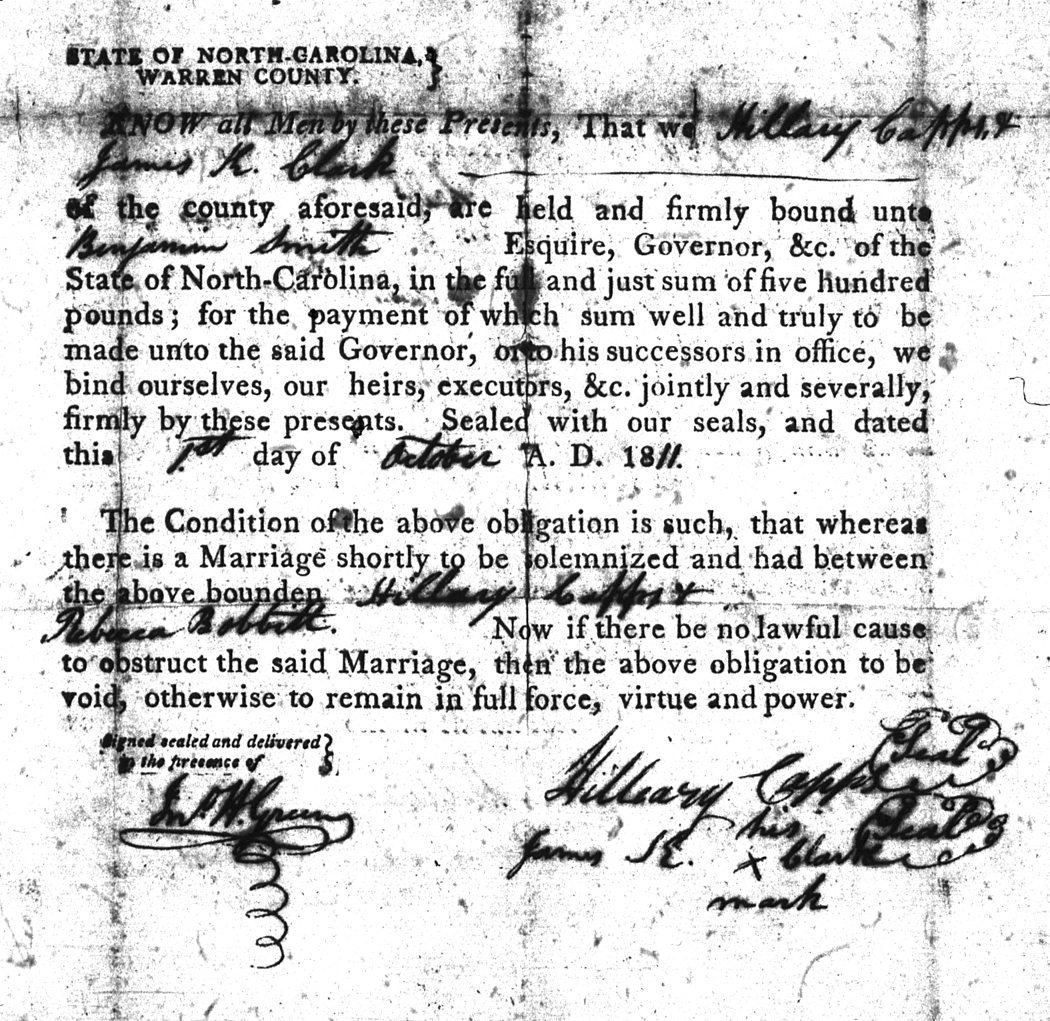 STATE OF NORTH-CAROLINA,
WARREN COUNTY.
KNOW all Men by these Presents, That we Hillary Capps, &
James K. Clark
of the county aforesaid, are held and firmly bound unto
Benjamin Smith Esquire, Governor, &c. of the
State of North-Carolina, in the full and just sum of five hundred
pounds; for the payment of which sum well and truly to be
made unto the said Governor, or to his successors in office, we
bind ourselves, our heirs, executors, &c. jointly and severally,
firmly by these presents. Sealed with our seals, and dated
this 1st day of October A. D. 1811.
The Condition of the above obligation is such, that whereas
there is a Marriage shortly to be solemnized and had between
the above bounden Hillary Capps &
Rebecca Bobbitt. Now if there be no lawful cause
to obstruct the said Marriage, then the above obligation to be
void, otherwise to remain in full force, virtue and power.
Signed sealed and delivered
in the presence of
Jno. W. Green
Hilleary Capps Seal
his
James K. x Clark Seal
mark